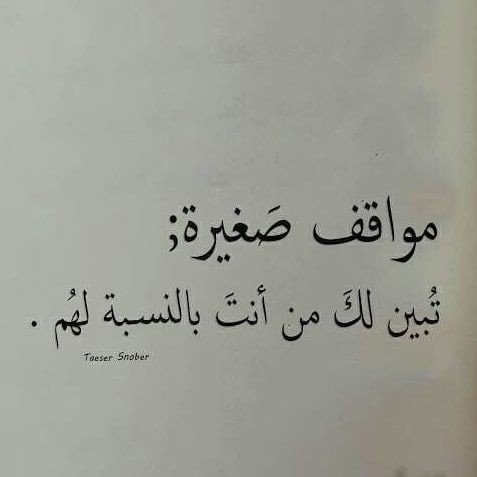 مواقف صَغيرة;
تُبين لكَ من أنتَ بالنسبة لهُم .
Taeser Snober